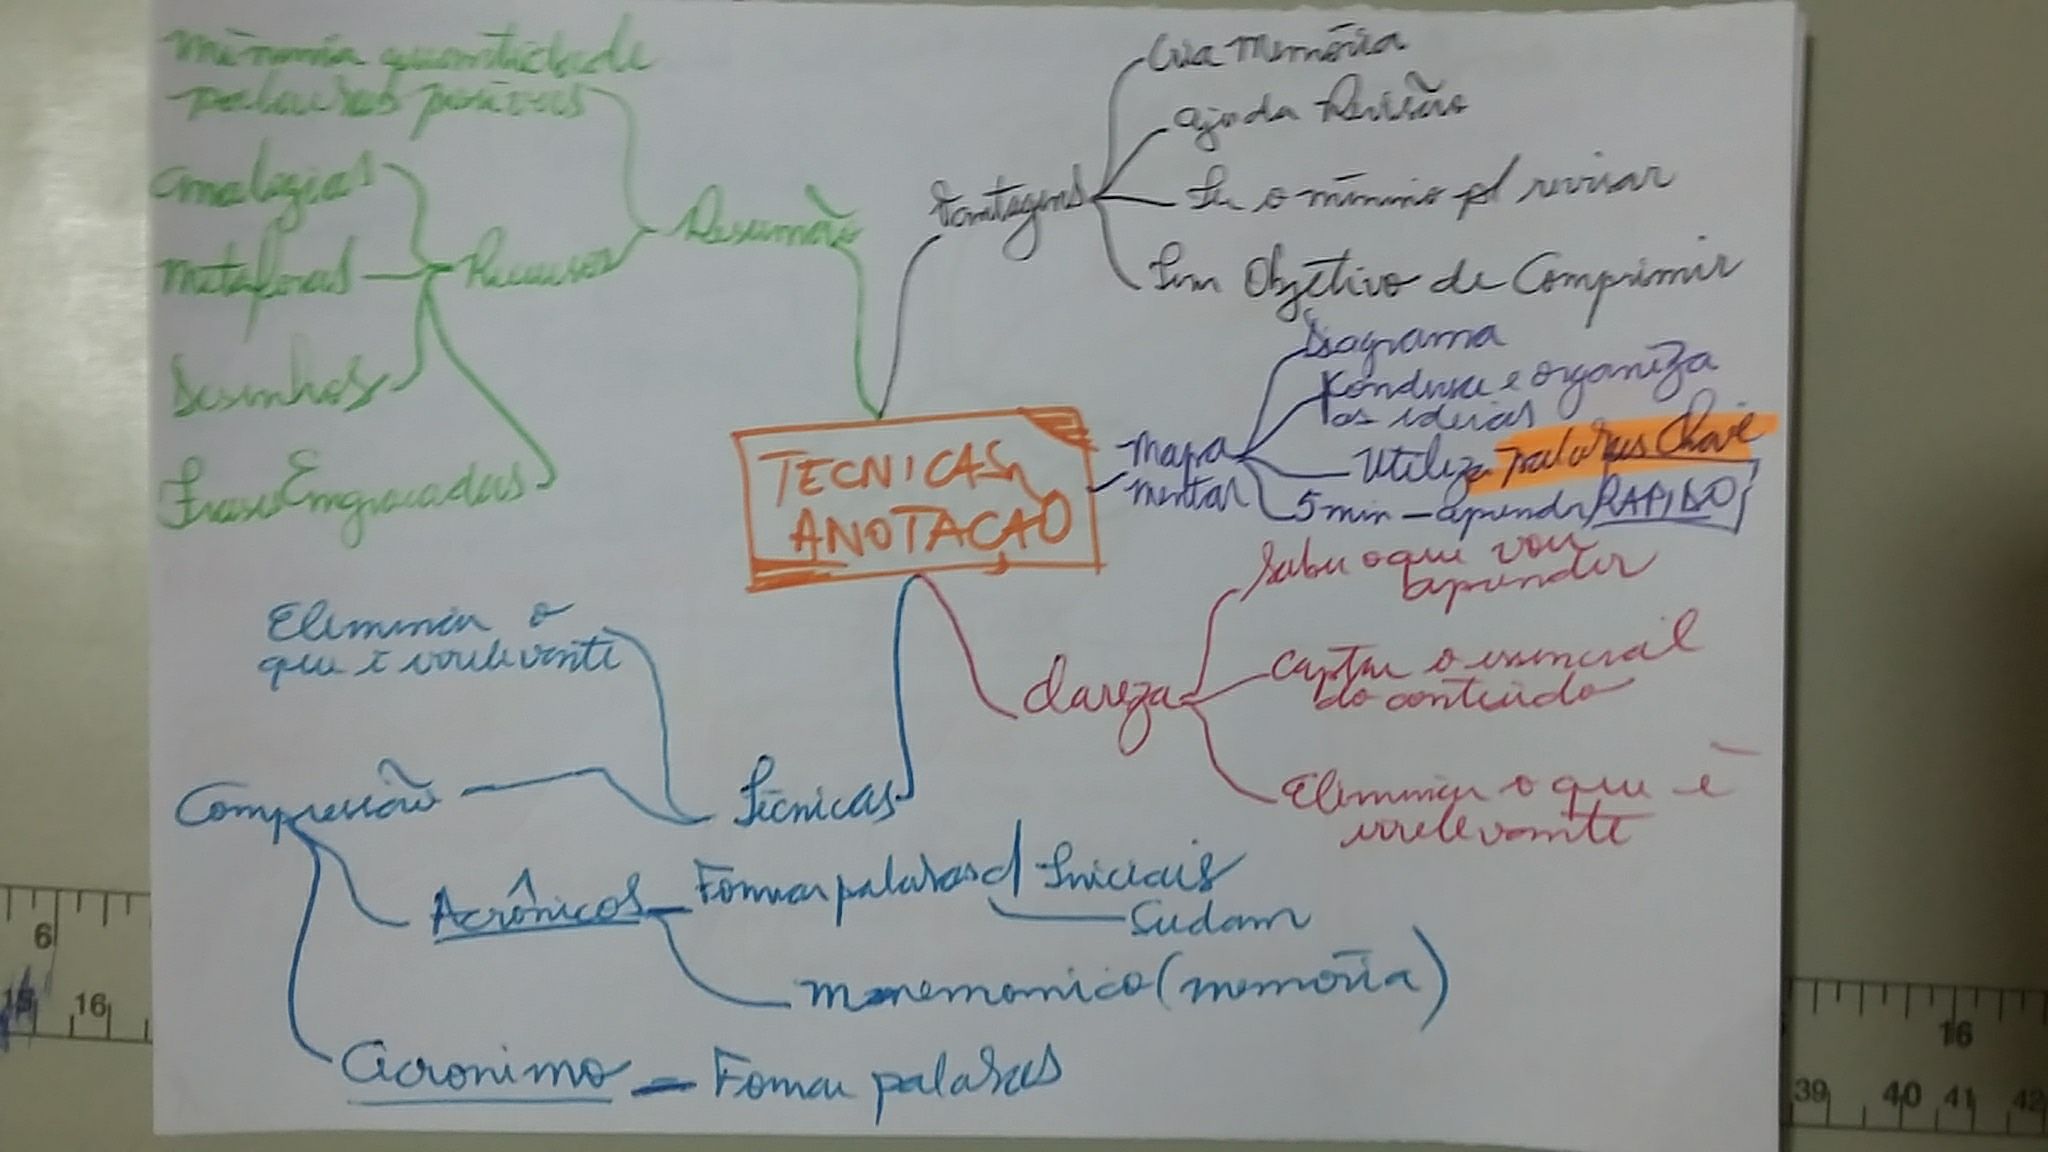 Minima quantidade
palavras
analogias
Metaforas
Desenhos
Frases Engracadas
Recursos
Resumão
Vantagens
Cria Memória
ajuda Revisão
Ler o mínimo p/ revisar
Objetivo de Comprimir
TECNICAS
ANOTAÇAO
Mapa
mental
Diagrama
Kondense e organiza
as ideias
Utiliza palavras Chave
5 min - aprender RAPIDO
Clareza
Saber o que vou
aprender
Captar o essencial
do conteúdo
Eliminar o que é
irrelevante
Eliminar o
que é irrelevante
Técnicas
Compressão
Acrônicos - Formar palavras c/ Iniciais
Sudam
Mnemonico (memória)
acronimo - Fomar palavras
6
15 16
16
39 40 41 42